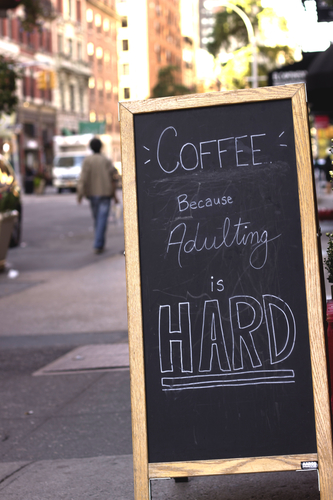 COFFEE
Because
Adulting
is
HARD